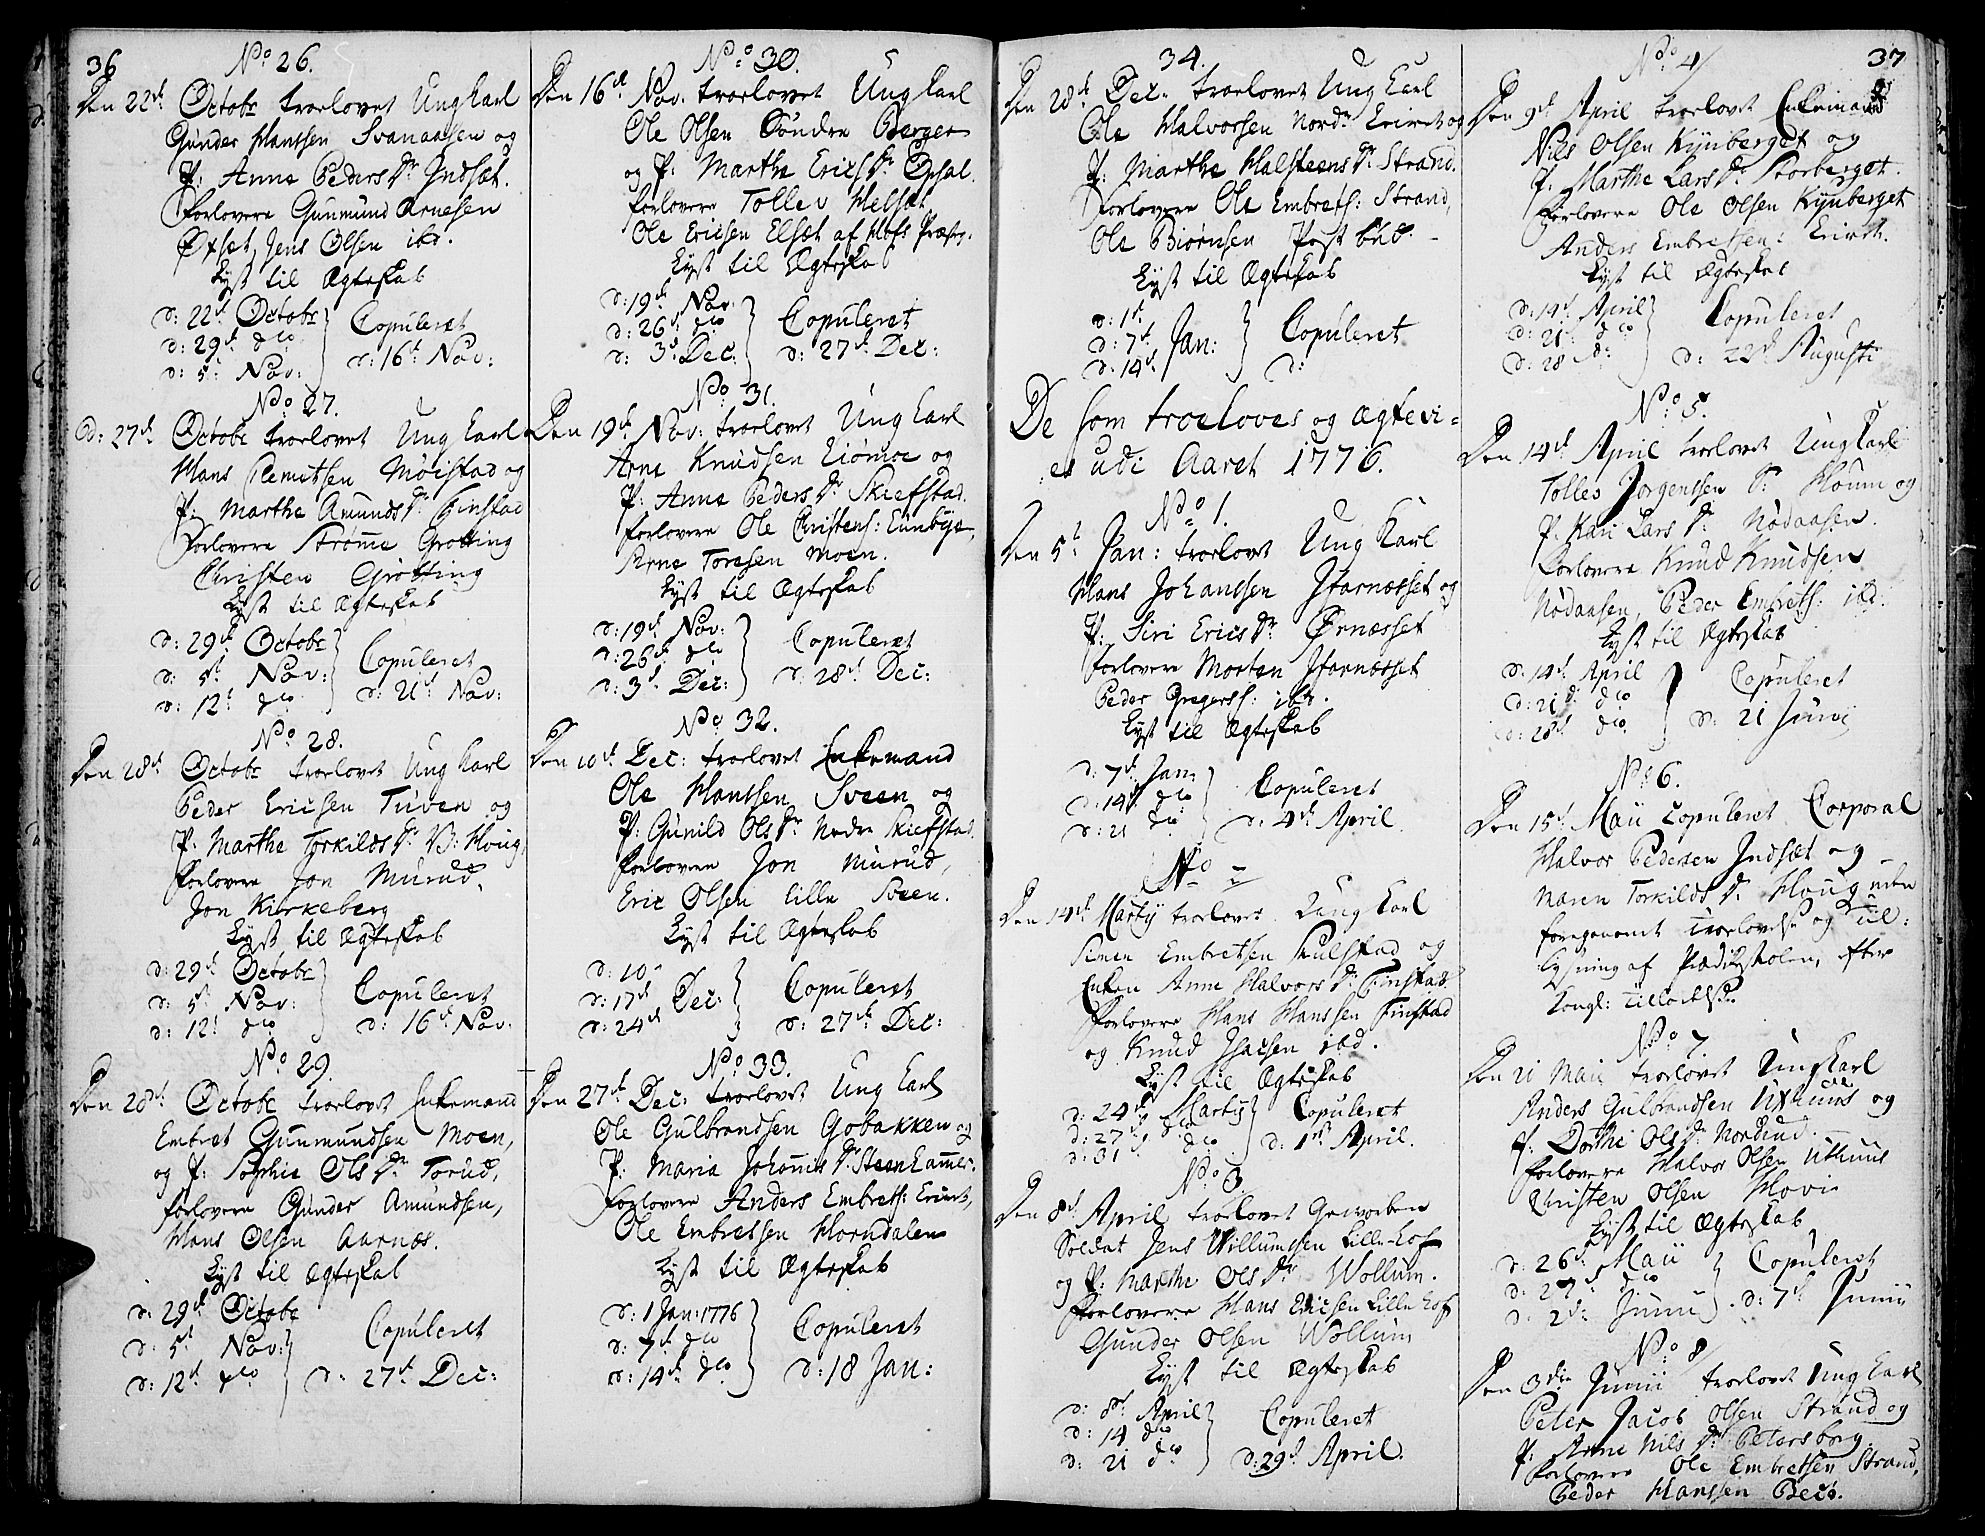 36
No 26.
Den 22d Octobr troelovet Ung Karl
Gunder Hansen Svenaasen og
P: Anne Peders Dr Indset.
Forlovere Gunmund Arnesen
Øxset, Jens Olsen ibd.
Lyst til Ægteskab
d: 22d Octobr
d: 29d do Copuleret
d: 5t Nov: d: 16t Nov:
No 27.
d: 27d Octobr troelovet Ung Karl
Hans Clemetsen Møistad og
P: Marthe Amunds Dr Finstad
Forlovere Strøme Grøtting
Christen Grøtting
Lyst til Ægteskab
d: 29d Octobr
d: 5t Nov: Copuleret
d: 12t do d: 21t Nov:
No 28.
Den 28d Octobr troelovet Ung Karl
Peder Ericsen Tuven og
P: Marthe Torkilds Dr B: Houg,
Forlovere Jon Murud,
Jon Kirkeberg
Lyst til Ægteskab
d: 29d Octobr
d: 5t Nov: Copuleret
d: 12t do d: 16t Nov:
No 29.
Den 28d Octobr troelovet Enkemand
Embret Gunmundsen Moen,
og P: Sophie Ols Dr Torud,
forlovere Gunder Amundsen,
Hans Olsen Aarnæs.
Lyst til Ægteskab
d: 29d Octobr
d: 5t Nov: Copuleret
d: 12t do d: 27d Dec:
No 30.
Den 16d Nov: troelovet Ung Karl
Ole Olsen Søndre Berger
og P: Marthe Erics Dr Opsal.
forlovere Tollev Melset,
Ole Ericsen Elset af Hofs Præstg.
Lyst til Ægteskab
d: 19d Nov:
d: 26d do Copuleret
d: 3d Dec: d: 27d Dec:
No 31.
Den 19d Nov: troelovet Ung Karl
Arne Knudsen Liømoe og
P: Anne Peders Dr Skiefstad.
forlovere Ole Christens: Lunbye,
Arne Toresen Moen.
Lyst til Ægteskab
d: 19d Nov:
d: 26d do Copuleret
d: 3d Dec: d: 28d Dec:
No 32.
Den 10d Dec: troelovet Enkemand
Ole Hanssen Sveen og
P: Gunild Ols Dr Nedre Skiefstad.
forlovere Jon Murud,
Eric Olsen Lille Sveen.
Lyst til Ægteskab
d: 10
d: 17d Dec: Copuleret
d: 24d d: 27d Dec:
No 33.
Den 27d Dec: troelovet Ung Karl
Ole Gulbrandsen Gobakken og
P: Maria Johannis Dr Steenkamer.
forlovere Anders Embrets:
Ole Embretsen Horndalen
Lyst til Ægteskab
d: 1 Jan: 1776
d: 7d do Copuleret
d: 14d do d: 18 Jan:
34.
Den 28d Dec: troelovet Ung Karl
Ole Halvorsen Nordr og
P: Marthe Halsteens Dr Strand.
Forlovere Ole Embrets: Strand,
Ole Biørnsen
Lyst til Ægteskab
d: 1t
d: 7d Jan: Copuleret
d: 14d d:
De som troeloves og ægtevi=
es udi Aaret 1776.
No 1.
Den 5t Jan: troelovet Ung Karl
Hans Johansen Starnæsset og
P: Siri Erics Dr Ørnæsset
forlovere Morten Starnæsset
Peder Gregerss: ibd.
Lyst til Ægteskab
d: 7d Jan:
d: 14d do Copuleret
d: 21 do d: 4d April
No 2
Den 14d Martij troelovet Ung Karl
Simen Embretsen Kulstad og
Enken Anne Halvors Dr Finstad.
Forlovere Hans Hanssen Finstad
og Knud Isacsen ibd.
Lyst til Ægteskab
d: 24d Martij Copuleret
d: 27d do
d: 31 do d: 1t April.
No 3
Den 8d April troelovet Gevorben
Soldat Jens Willumsen Lille-Hof
og P: Marthe Ols Dr Wollum.
Forlovere Hans Ericsen Lille Hof
Gunder Olsen Wollum
Lyst til Ægteskab
d: 8d April
d: 14 do Copuleret
d: 21 do d: 29d April.
37
No 4
Den 9d April troelovet Enkemand
Nils Olsen Kynberget og
P: Marthe Lars Dr Storberget.
Forlovere Ole Olsen Kynberget
Anders Embretsen
Lyst til Ægteskab
d: 14d April
d: 21 do Copuleret
d: 28 d: d: 22d Augusti
No 5.
Den 14d April troelovet Ung Karl
Tollev Jorgensen Houm og
P. Kari Lars Dr Nødaasen.
Forlovere Knud Knudsen
Nødaasen, Peder Embrets: ibd.
Lyst til Ægteskab
d: 14d April
d: 21d do Copuleret
d: 28d do d: 21 Junij
No 6.
Den 15d Maii Copuleret Corporal
Halvor Pedersen Indset og
Maren Torkilds Dr Houg uden
foregaaende Troelovelse og Til:
lysning af Prædikestolen, efter
Kongl: Tilladelse.
No 7
Den 21 Maii troelovet Ung Karl
Anders Gulbrandsen Uthuus og
P. Dorthe Ols Dr Nordrud.
forlovere Halvor Olsen Uthuus
Christen Olsen Hovi
Lyst til Ægteskab
d: 26d Maii Copuleret
d: 27d do
d: 2d Junii d: 7d Junii
No 8
Den 3die Junii troelovet Ung Karl
Peter Jacob Olsen Strand og
P: Anne Nils Dr Petersborg
Forlovere Ole Embretsen Strand,
Peder Hanssen Beck.